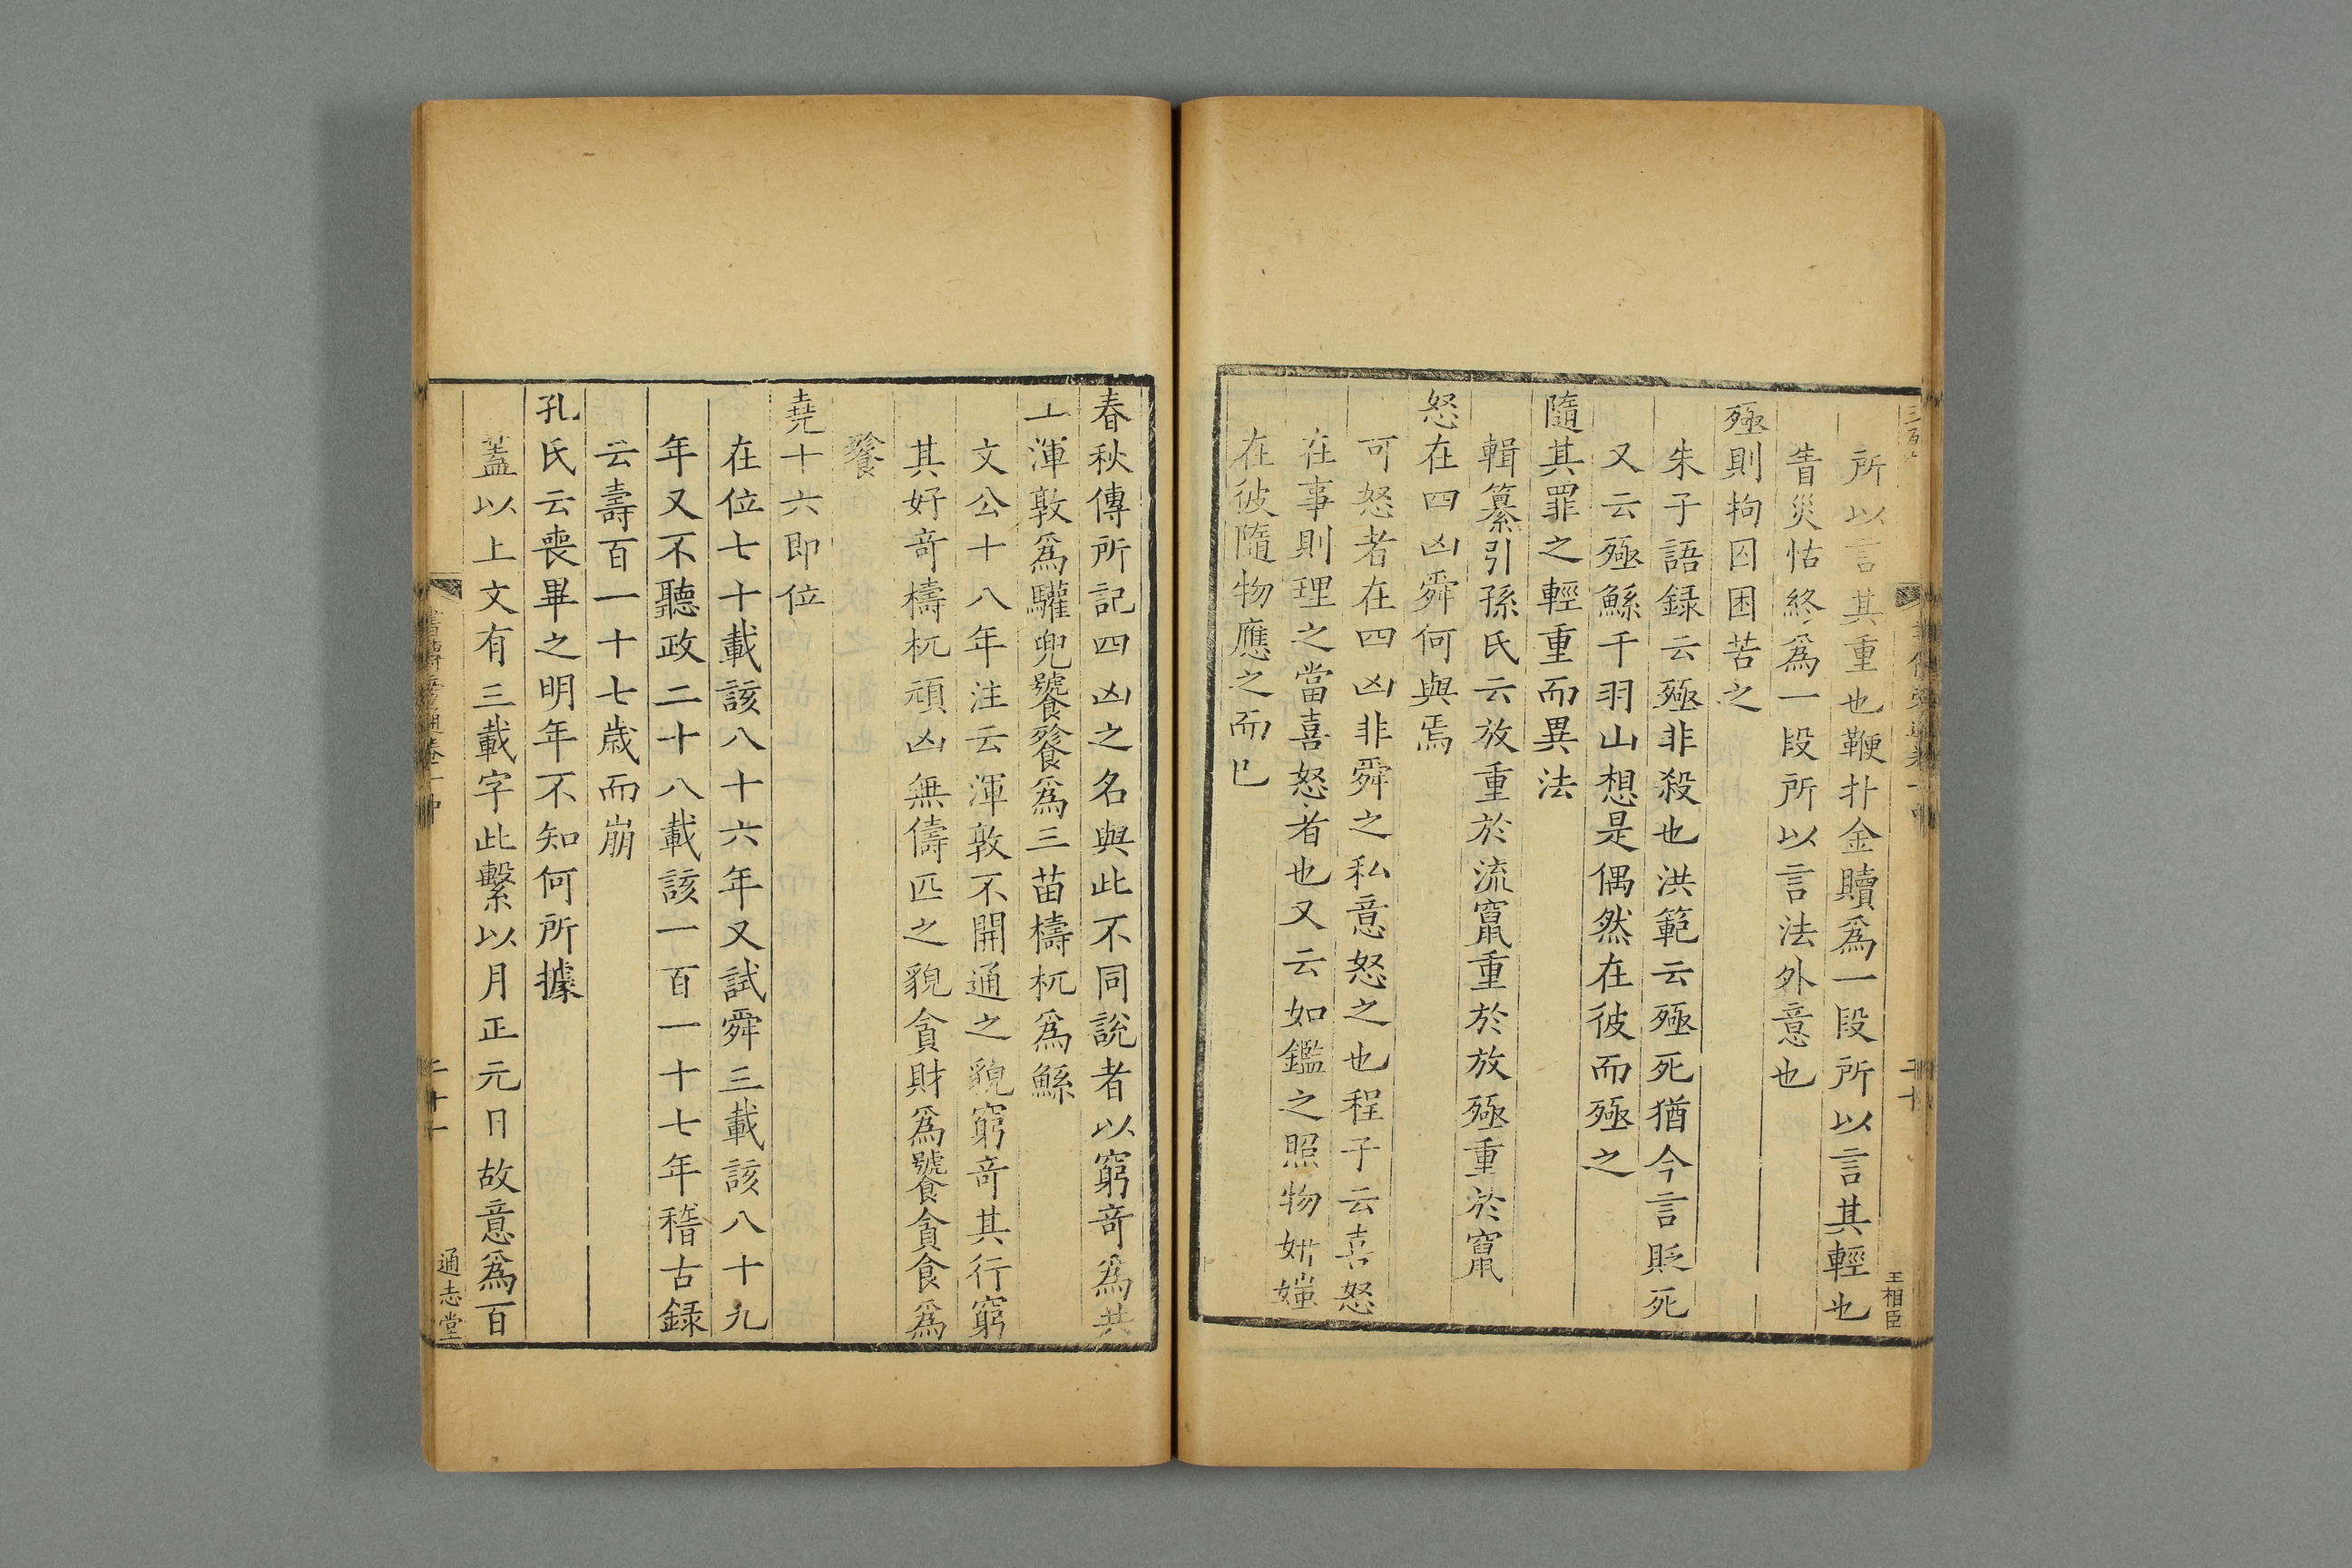 所以言其重也鞭扑金贖爲一段所以言其輕也
眚災怙終爲一段所以言法外意也
殛則拘囚困苦之
朱子語録云殛非殺也洪範云殛死猶今言貶死
又云殛鯀于羽山想是偶然在彼而殛之
隨其罪之輕重而異法
輯纂引孫氏云放重於流竄重於放殛重於竄
怒在四凶舜何與焉
可怒者在四凶非舜之私意怒之也程子云喜怒
在事則理之當喜怒者也又云如鑑之照物妍媸
在彼隨物應之而已
二十
王相臣
春秋傳所記四凶之名與此不同說者以窮竒爲共
工渾敦爲驩兜饕餮爲三苗檮杌爲鯀
文公十八年注云渾敦不開通之貌窮竒其行窮
其好竒檮杌頑凶無儔匹之貌貪財爲饕貪食爲
餮
堯十六即位
在位七十載該八十六年又試舜三載該八十九
年又不聽政二十八載該一百一十七年稽古録
云壽百一十七歲而崩
孔氏云喪畢之明年不知何所據
蓋以上文有三載字此繫以月正元日故意爲百
二十一
通志堂